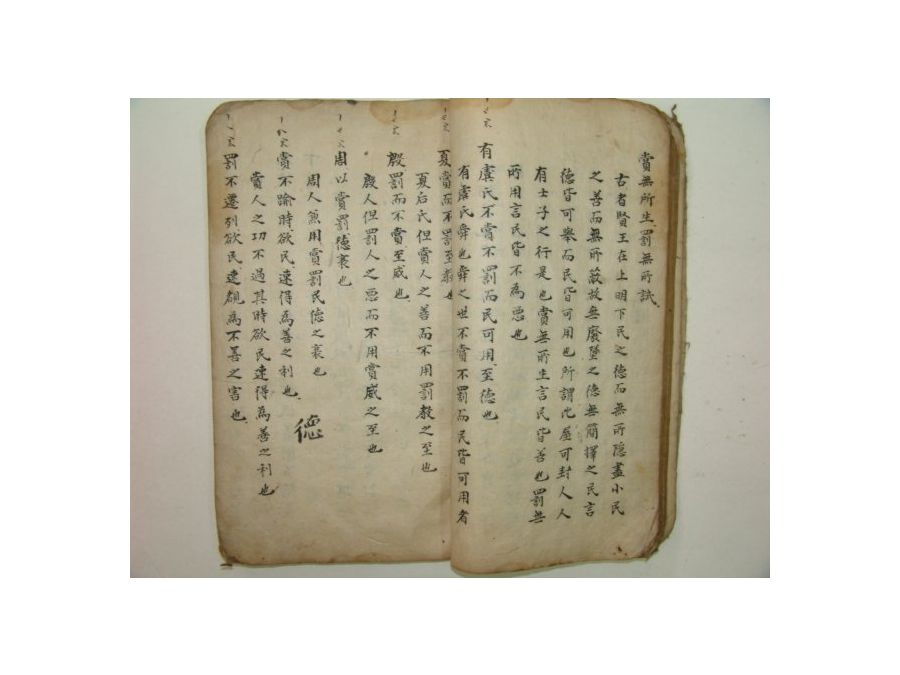 賞無所生罰無所試
古者賢王在上明下民之德而無所隱盡小民
之善而無所蔽故無廢墮之德無簡擇之民言
德皆可舉而民皆可用也所謂比屋可封人人
有士子之行是也賞無所生言民皆善也罰無
所用言民皆不為惡也
有虞氏不賞不罰而民可用至德也
有虞氏舜也舜之世不賞不罰而民皆可用者
夏賞而不罰至教也
夏后氏但賞人之善而不用罰教之至也
殷罰而不賞至威也
殷人但罰人之惡而不用賞威之至也
周以賞罰德衰也
周人兼用賞罰民德之衰也
德
賞不踰時欲民速得為善之利也
賞人之功不過其時欲民速得為善之利也
罰不遷列欲民速覩為不善之害也